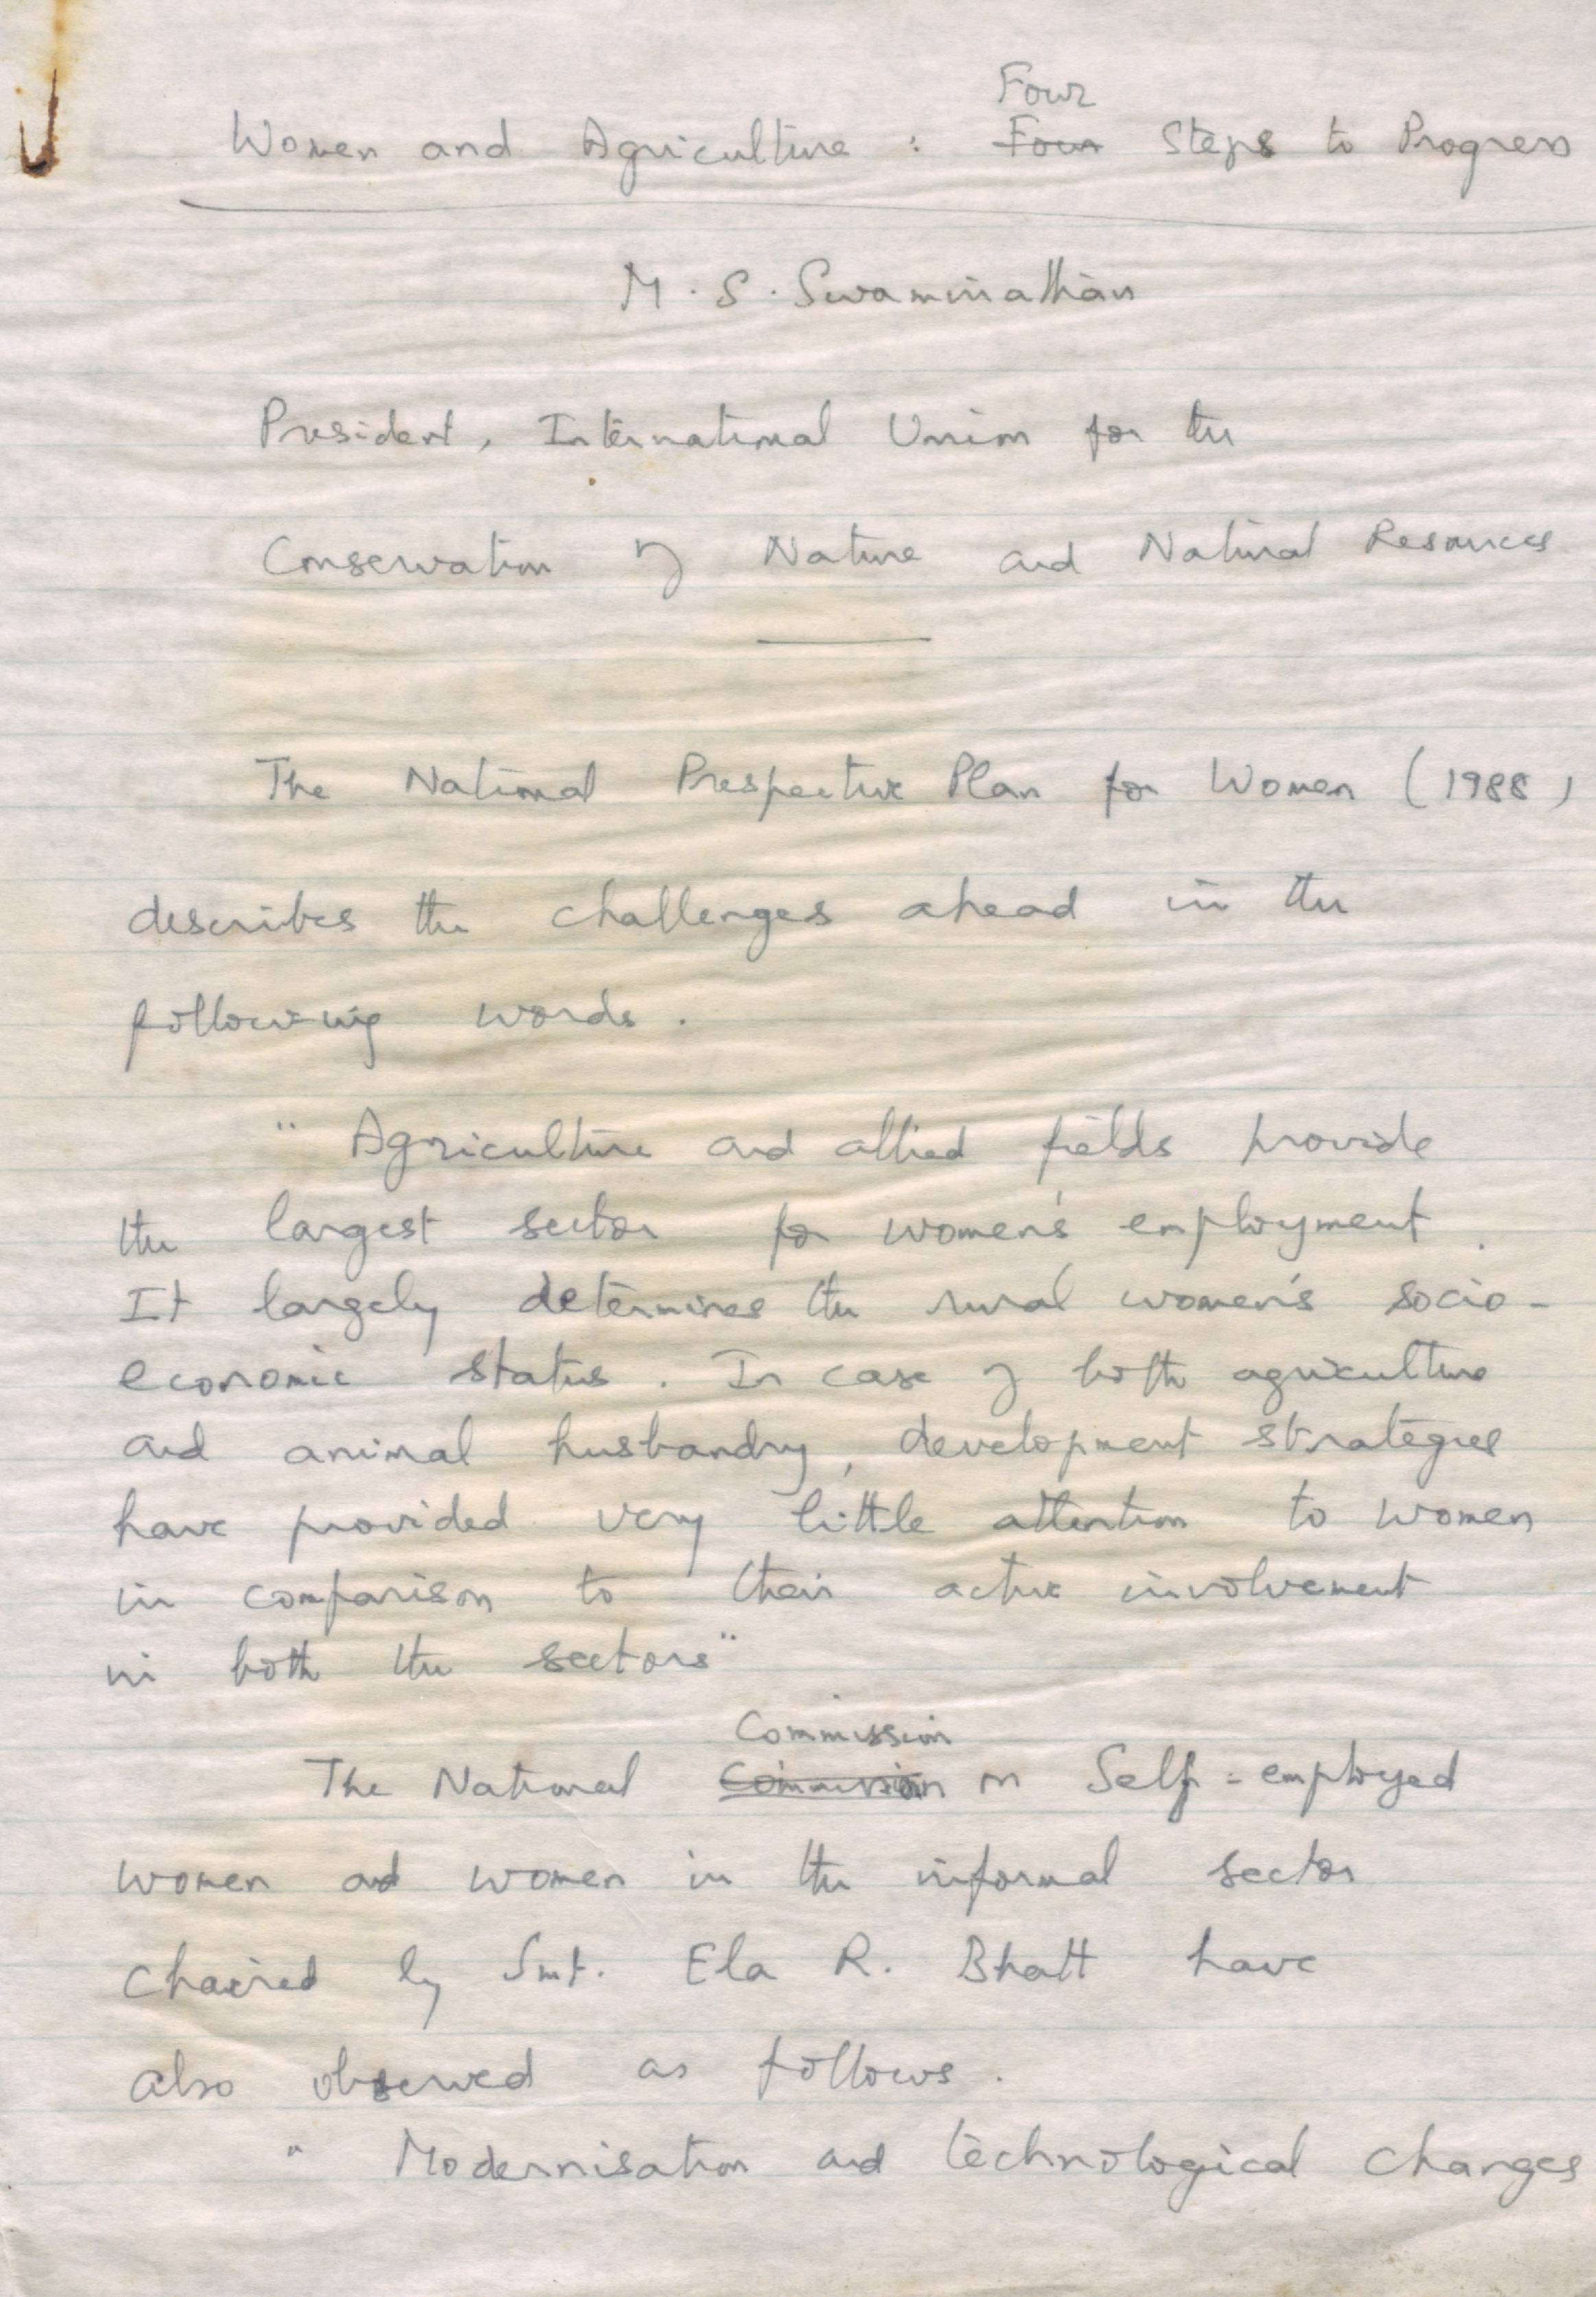 Four
Women and Agriculture : Four Steps to Progress
M. S. Swaminathan
President, International Union for the
Conservation of Nature and Natural Resources
The National Prespective Plan for Women (1988)
describes the challenges ahead in the
following words.
" Agriculture and allied fields provide
the largest sector for women's employment.
It largely determines the rural women's socio-
economic status. In case of both agriculture
and animal husbandry, development strategies
have provided very little attention to women
in comparison to their active involvement
in both the sectors"
Commission
The National Commission on Self-employed
women and women in the informal sector
chaired by Smt. Ela R. Bhatt have
also observed as follows.
" Modernisation and technological changes